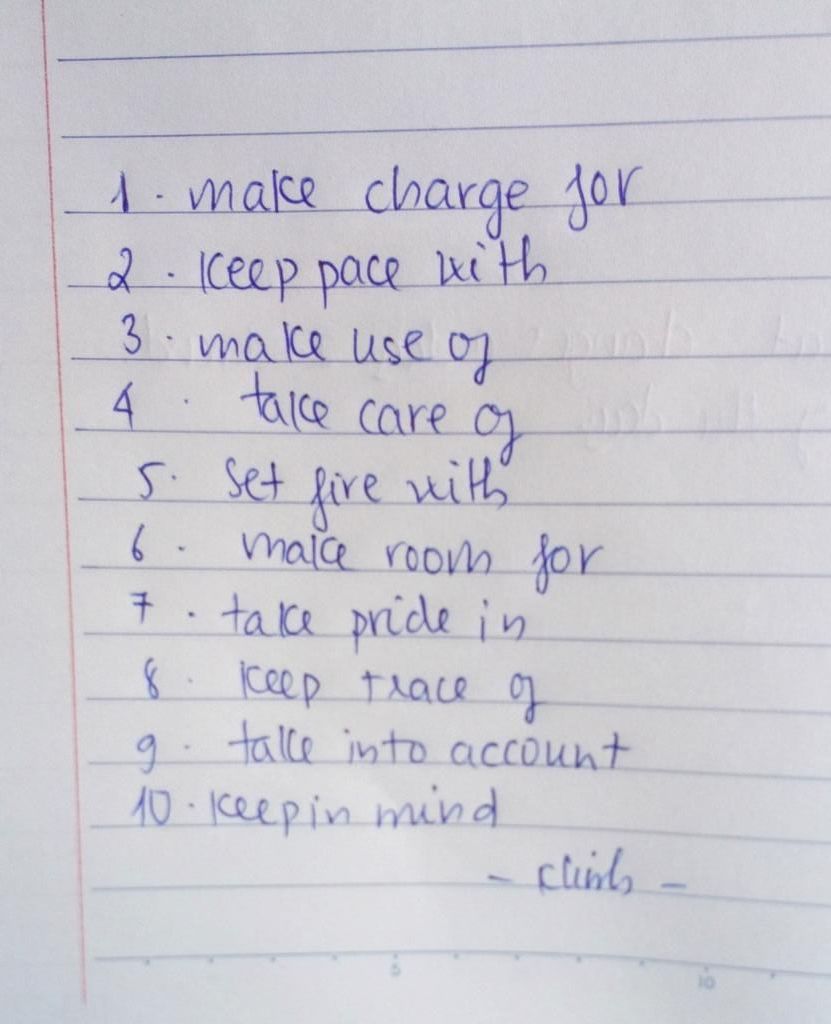 1. make charge for
2. keep pace with
3. make use of
4. take care of
5. set fire with
6. make room for
7. take pride in
8. keep trace of
9. take into account
10. keep in mind
5 10